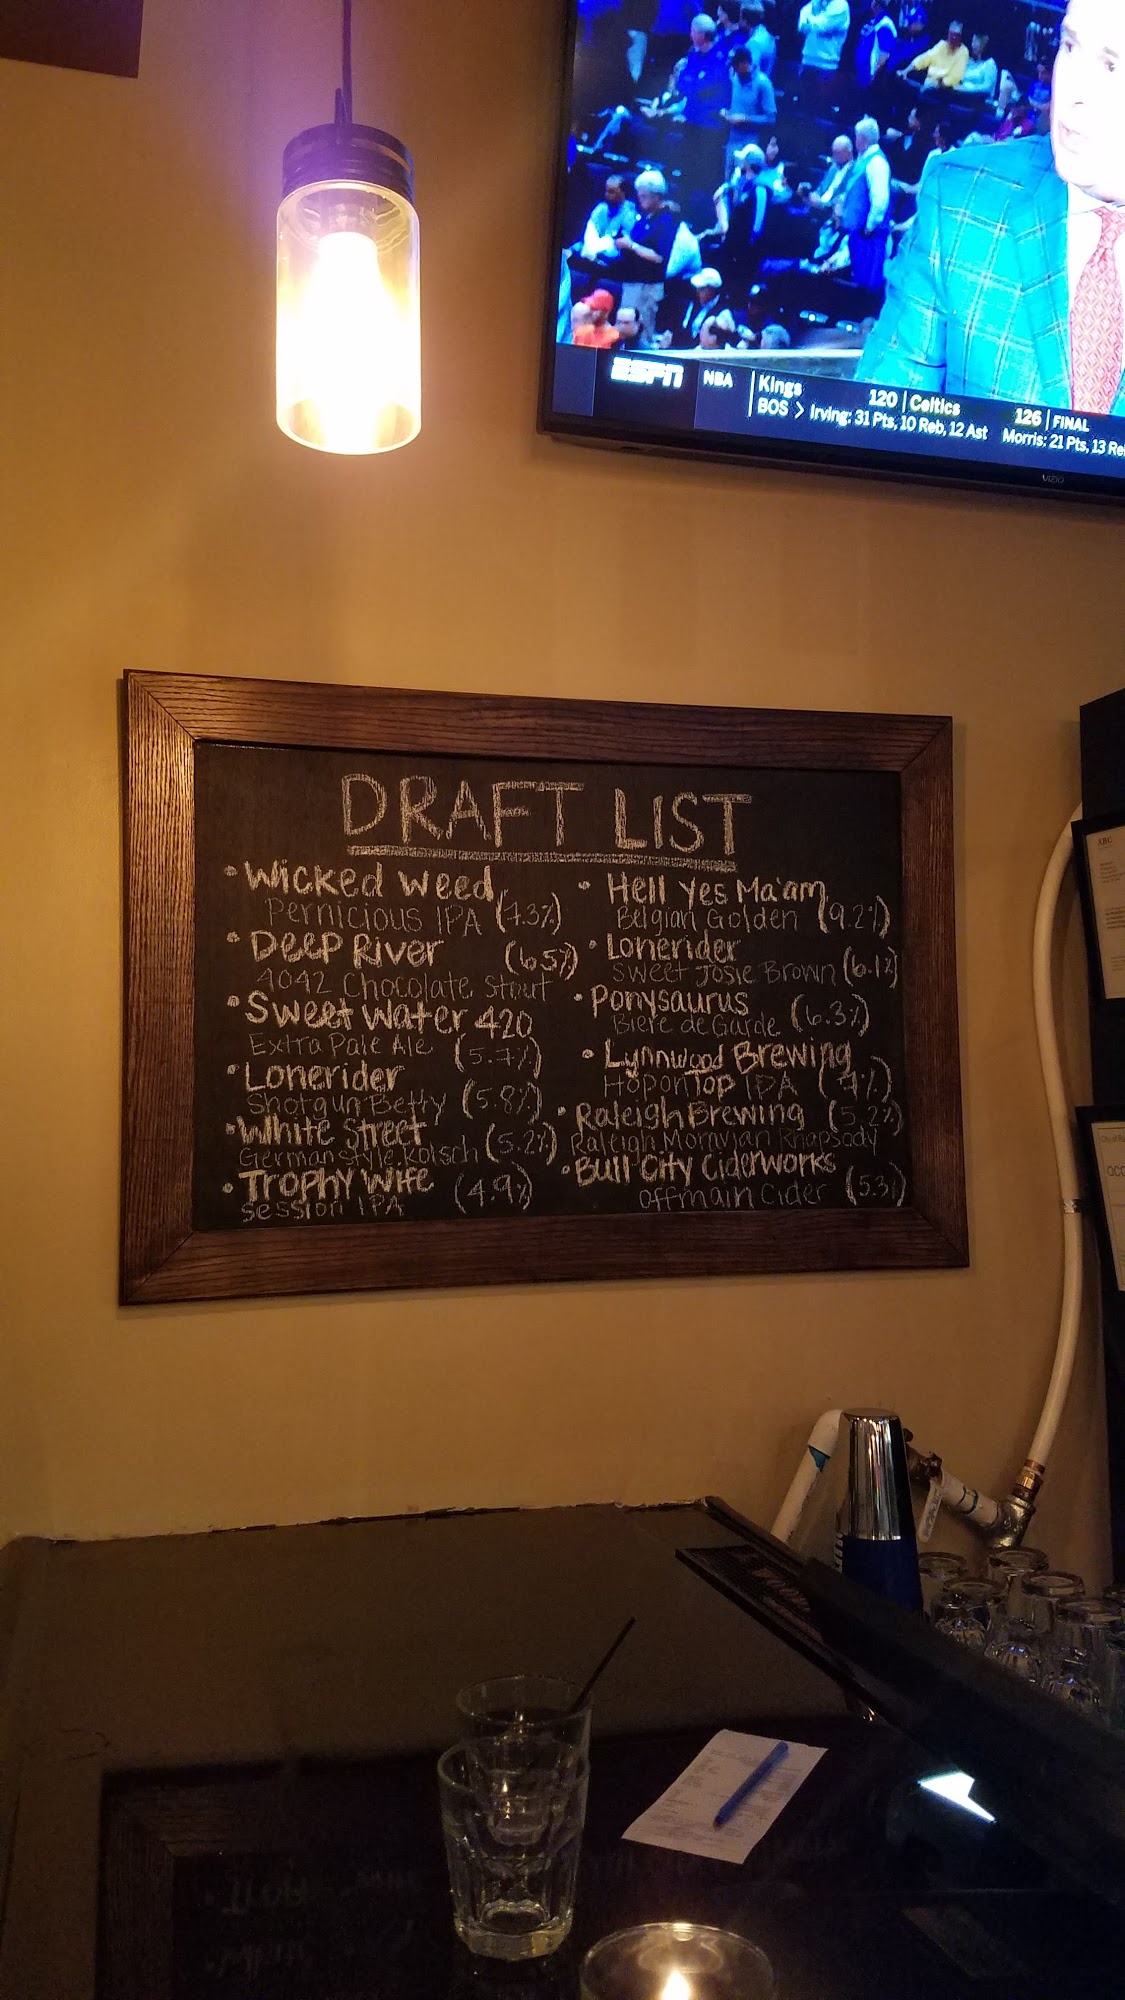 ESPN
NBA
Kings 120 | Celtics 126 | FINAL
BOS > Irving: 31 Pts, 10 Reb, 12 Ast Morris: 21 Pts, 13 Re
VIZIO
DRAFT LIST
• Wicked Weed
Pernicious IPA (7.3%)
• Deep River (6.5%)
4042 Chocolate Stout
• Sweet Water 420
Extra Pale Ale (5.7%)
• Lonerider
Shotgun Betty (5.8%)
• White Street
German style Kolsch (5.2%)
• Trophy Wife
Session IPA (4.9%)
• Hell Yes Ma'am
Belgian Golden (9.2%)
• Lonerider
Sweet Josie Brown (6.1%)
• Ponysaurus
Biere de Garde (6.3%)
• Lynnwood Brewing
Hop on Top IPA (7%)
• Raleigh Brewing (5.2%)
Raleigh Moravian Rhapsody
• Bull City Ciderworks
Off main Cider (5.3)
ABC